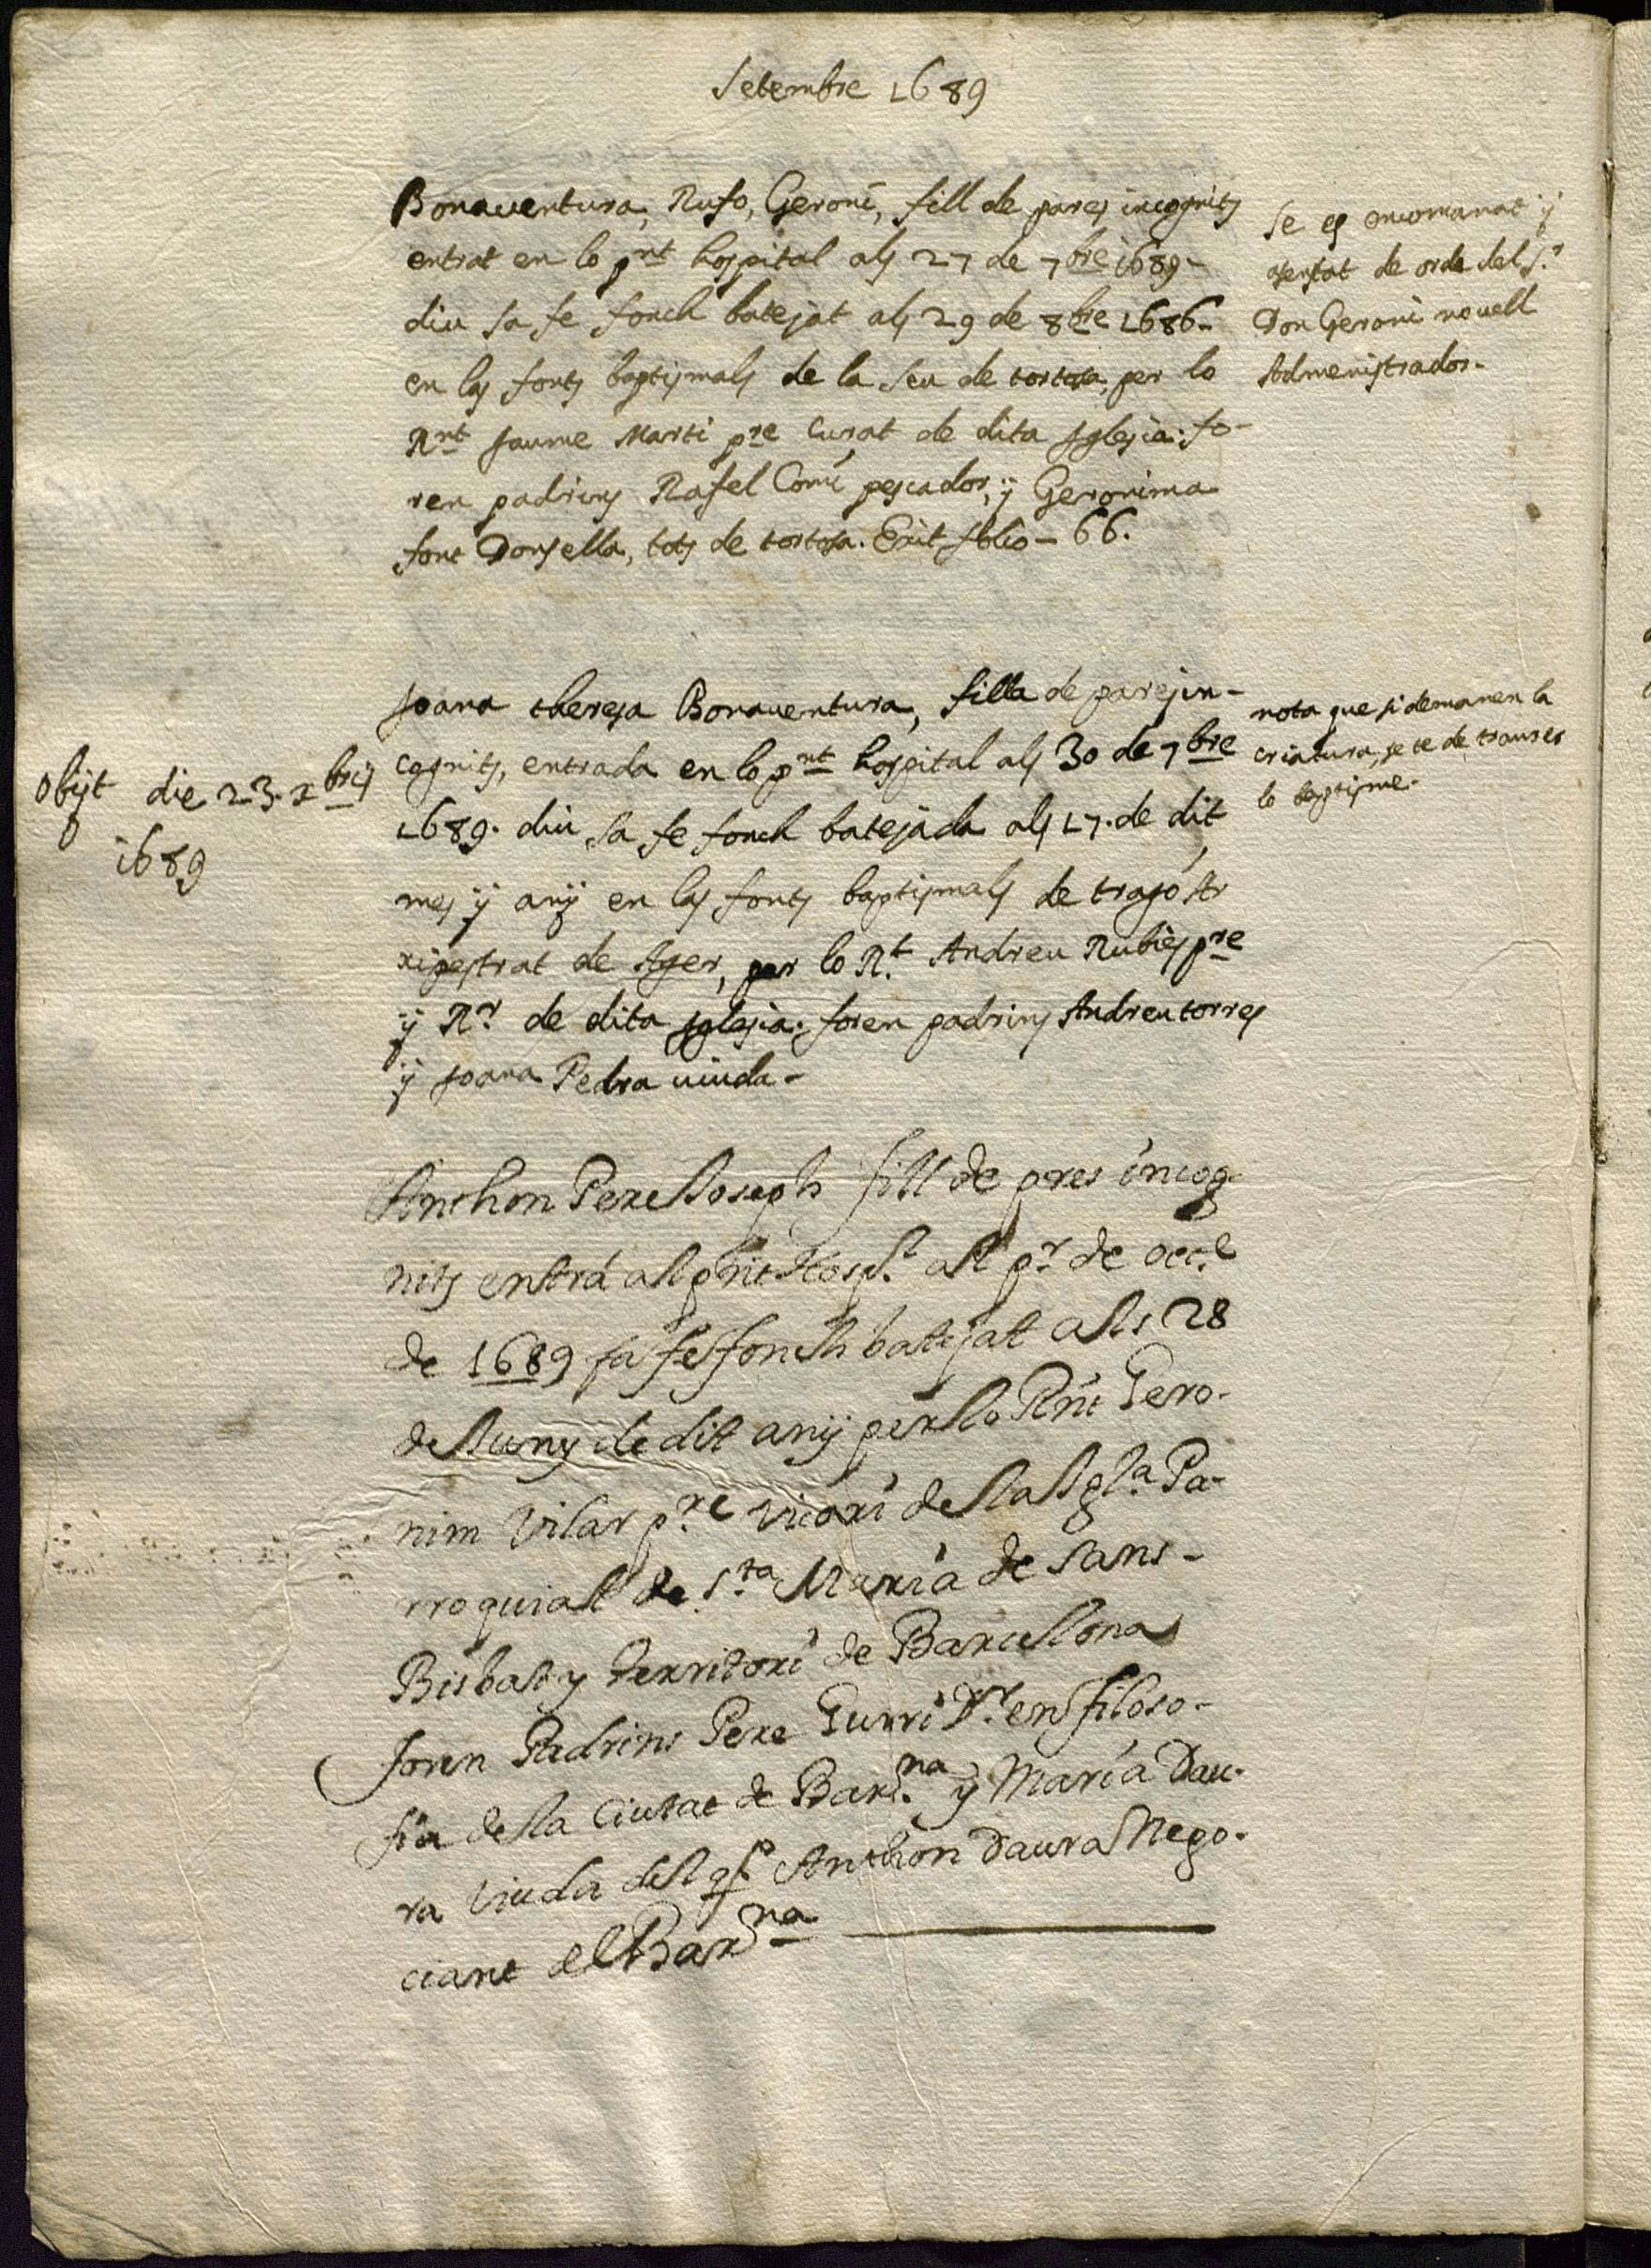 Setembre 1689
Bonaventura, Rufo, Geroni, fill de pares incognits
entrat en lo pnt hospital als 27 de 7bre 1689-
diu sa fe fonch batejat als 29 de 8bre 1686-
en las fonts baptismals de la Seu de tortosa, per lo
Rnt Jaume Marti pre Curat de dita Iglesia: fo-
ren padrins Rafel Comi pescador, ÿ Geronima
font Donsella, tots de tortosa. Exit folio - 66.
Se es encomanat ÿ
asentat de orde del Sr
Don Geroni novell
Administrador-
Joana theresa Bonaventura, filla de pares in-
cognits, entrada en lo pnt hospital als 30 de 7bre
1689. diu sa fe fonch batejada als 17. de dit
mes ÿ anÿ en las fonts baptismals de tragó Ar
xipestrat de Ager, per lo Rt Andreu Rubies pre
ÿ Rr de dita Iglesia. foren padrins Andreu torres
ÿ Joana Pedra viuda-
nota que si demanen la
criatura, se te de traurer
lo baptisme-
Obijt die 23. xbris
1689
Anthon Pere Joseph fill de pares incog-
nits entrá al pnt Hospl. al pr de octe
de 1689 sa fe fonch batejat als 28
de Juny de dit anÿ per lo Rnt Gero-
nim Vilar pre Vicari de la Igla Pa-
rroquial de Sta Maria de Sans-
Bisbat y Territori de Barcelona
foren Padrins Pere Gurri Dr. en filoso-
fia de la Ciutat de Barna y Maria Dau-
ra Viuda del qo Anthon Daura Nego-
ciant de Barna